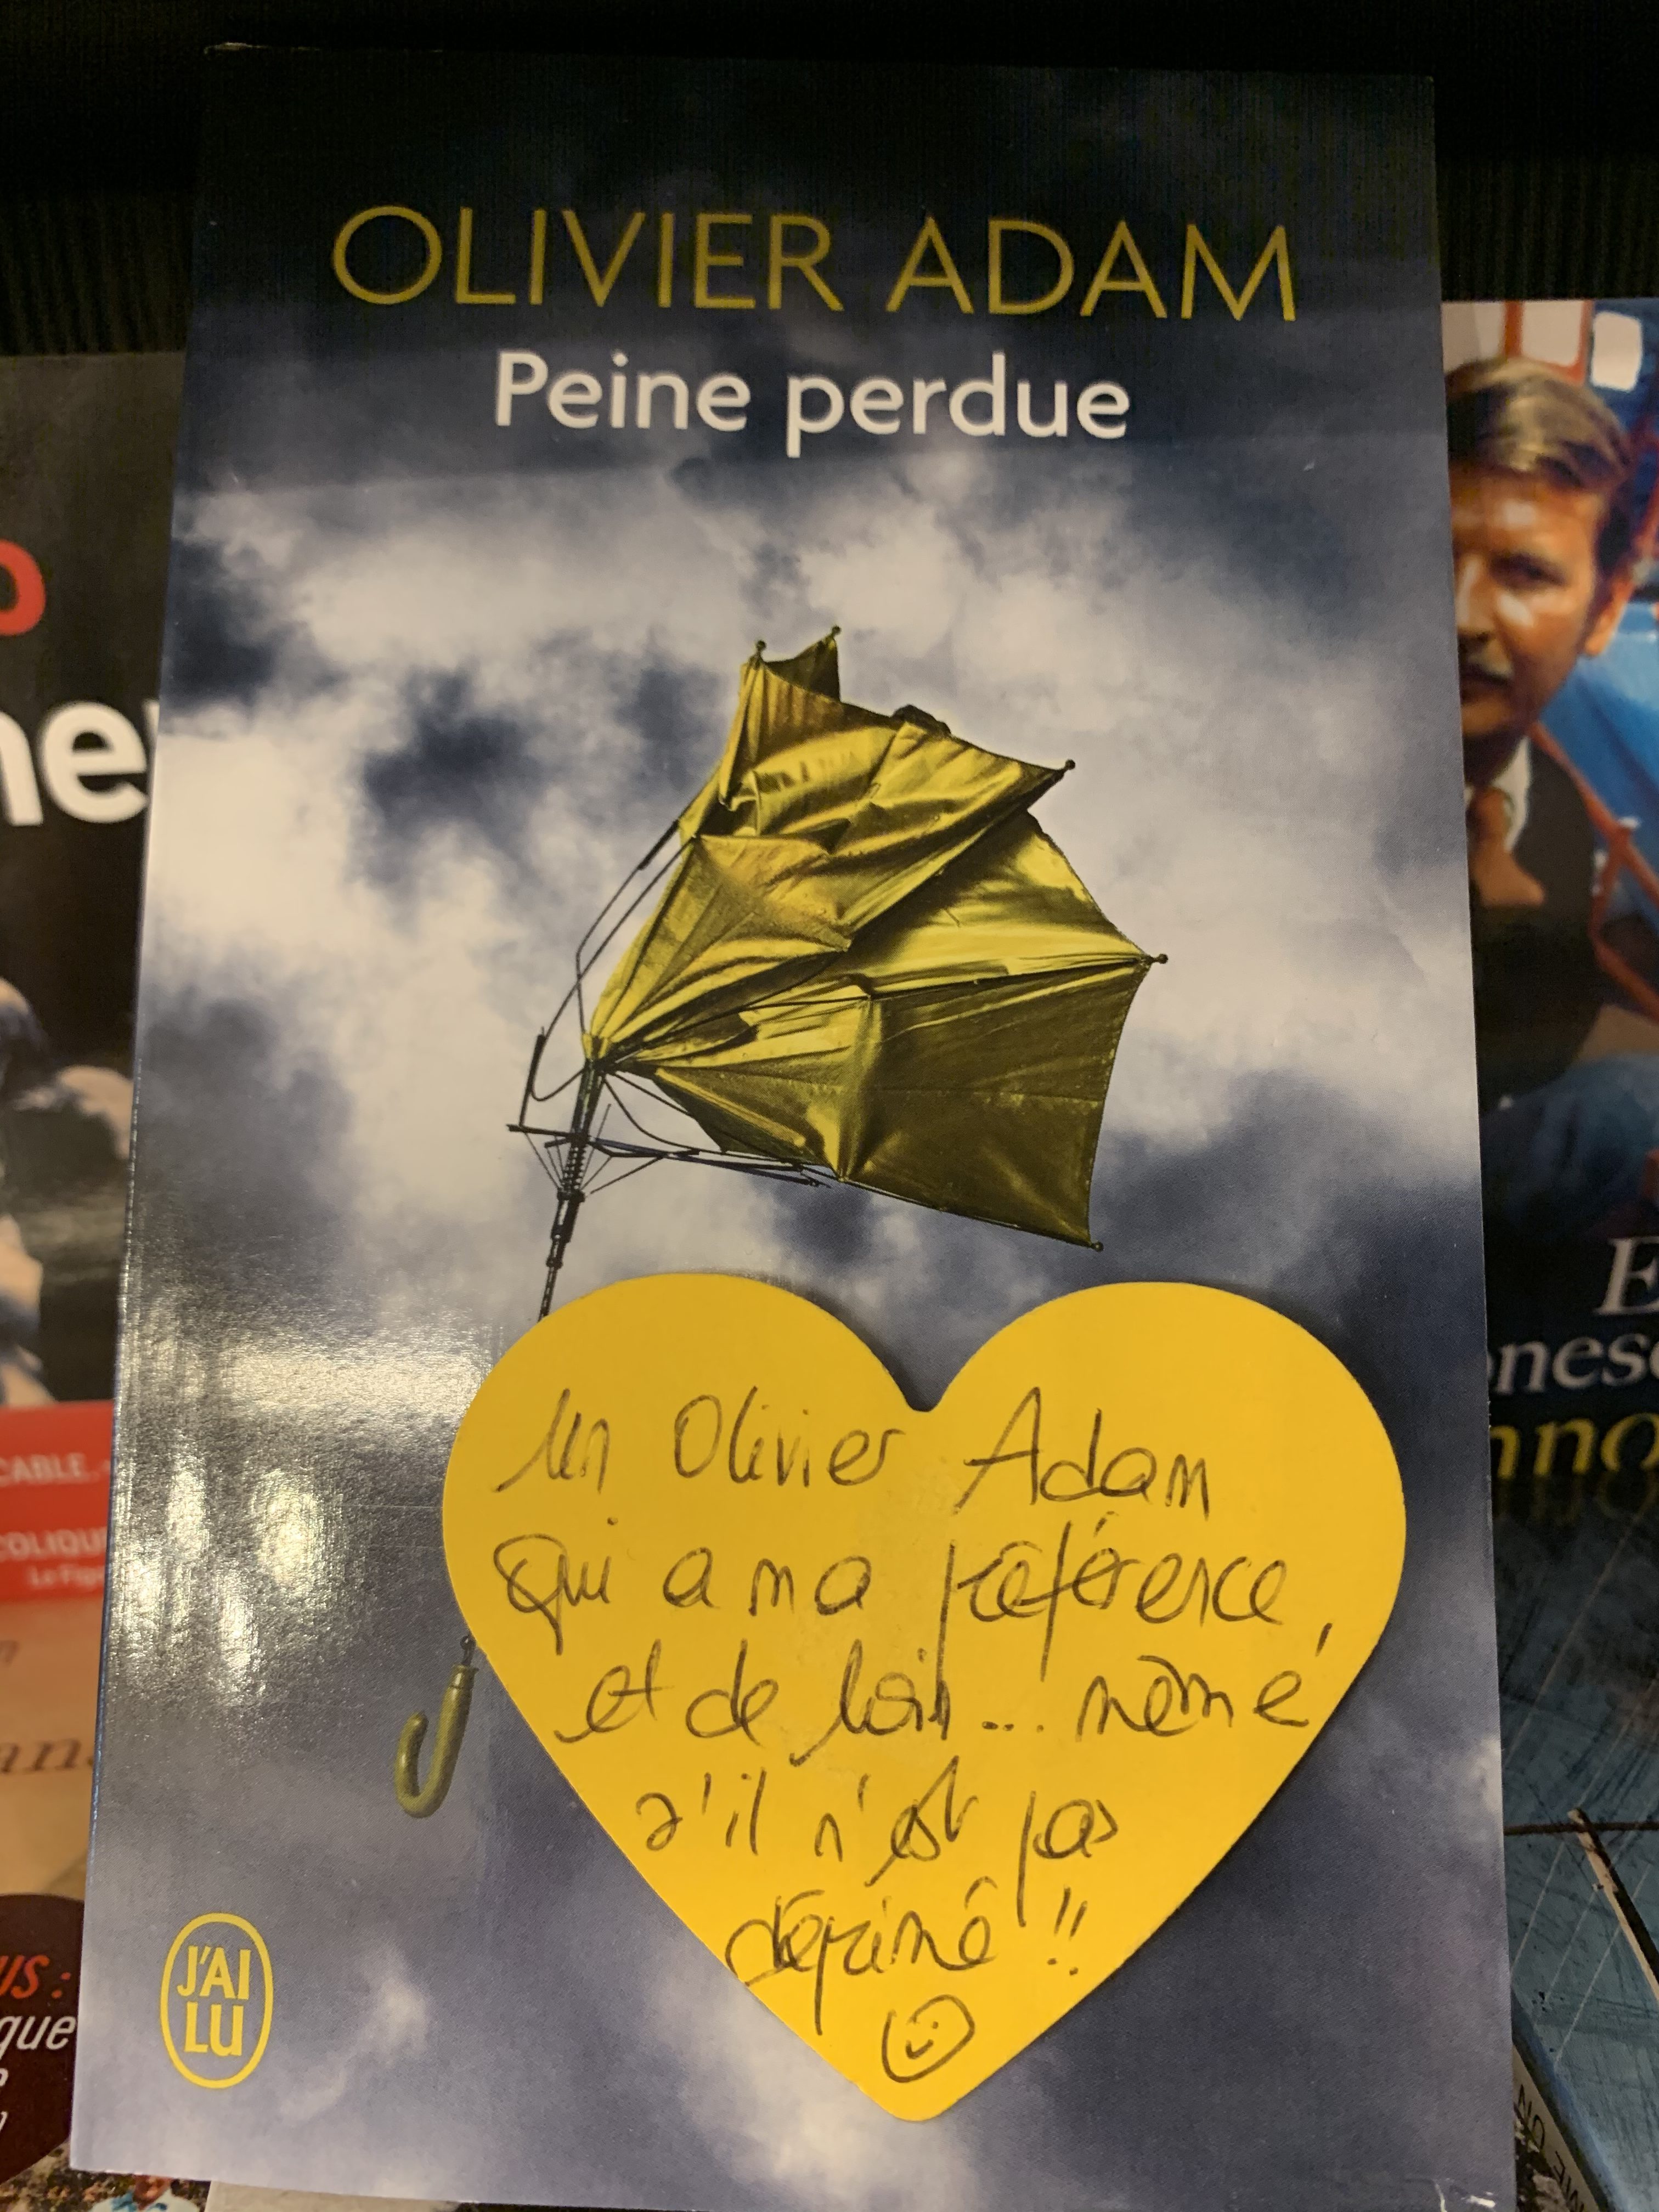 OLIVIER ADAM
Peine perdue
Un Olivier Adam
qui a ma préférence,
et de loin... même
s'il n'est pas
déprimé !!
J'AI
LU
CABLE.
COLIQU
Le Fig
US :
que
E
ones
nno